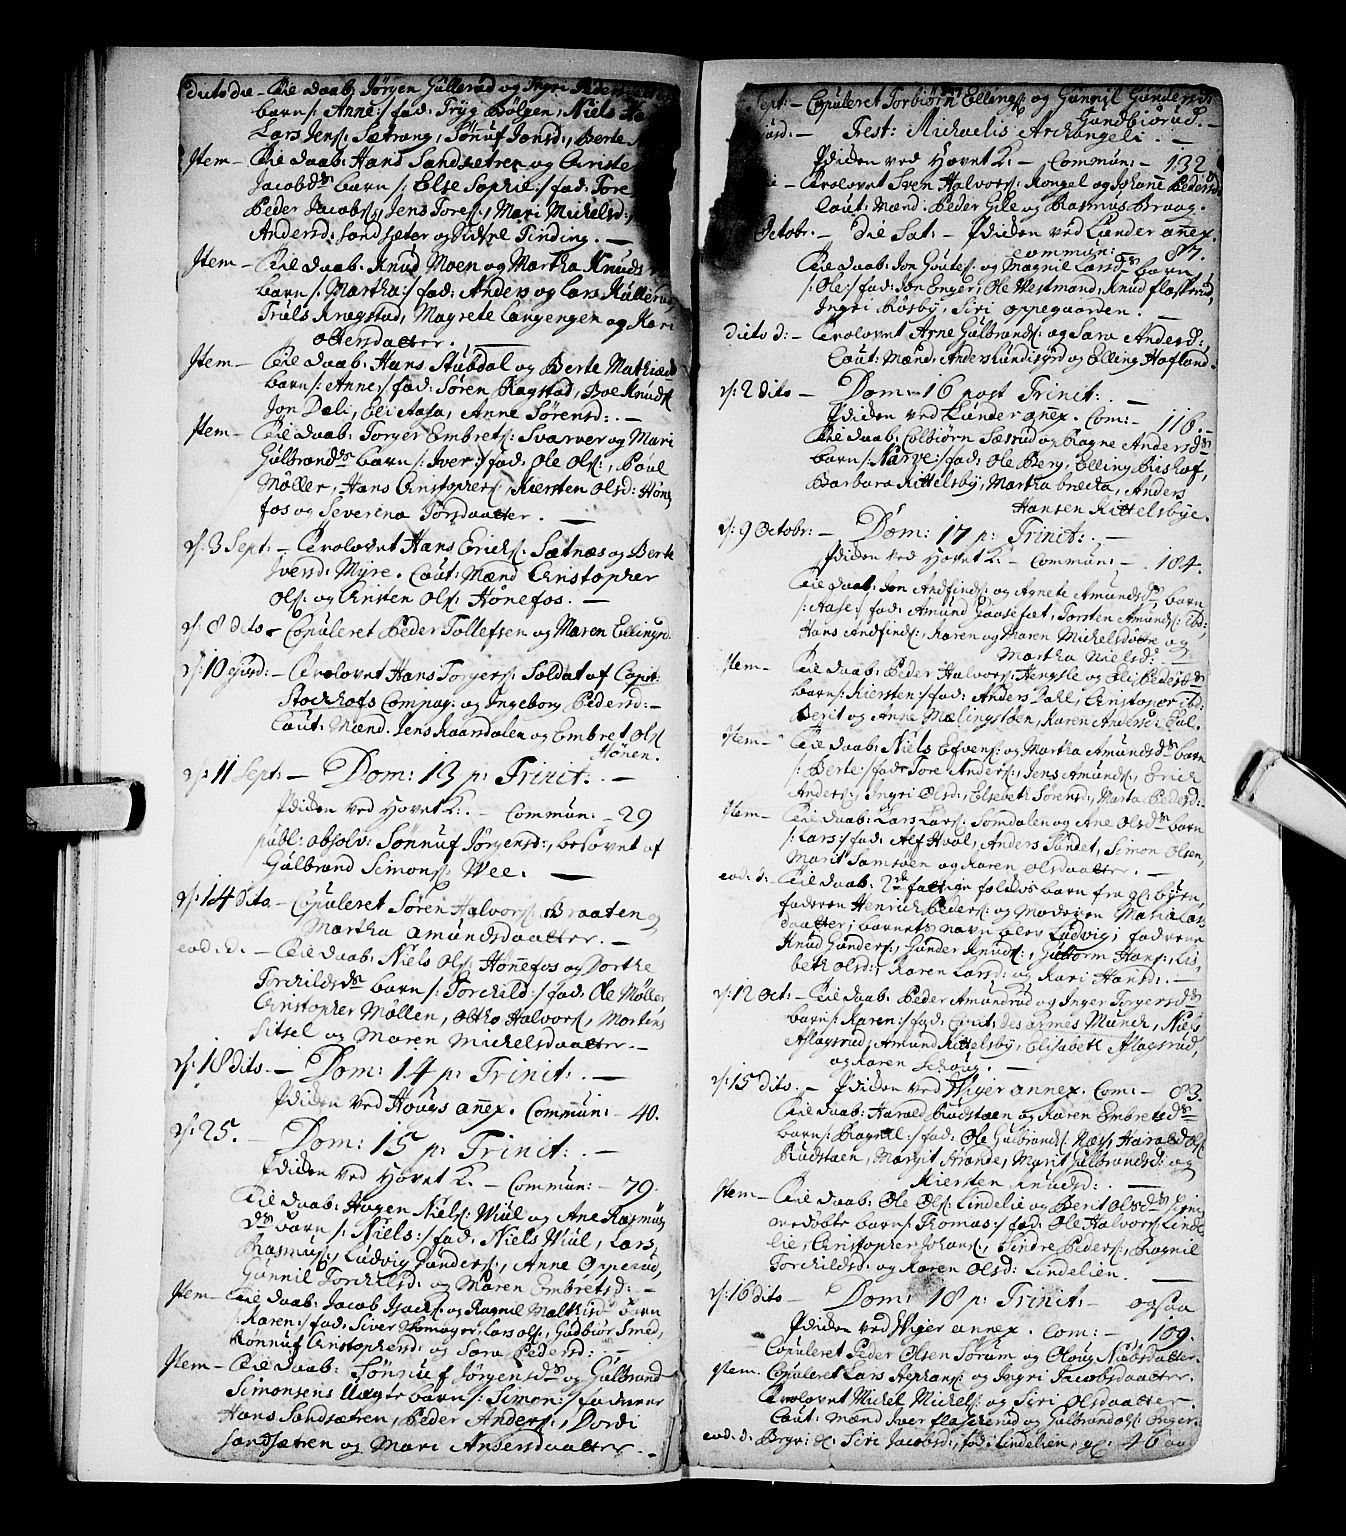 dito die – Eie daab: Jørgen Gullerud og Ingri Pedersdatter
barn /: Anne :/ fad: Tryg Bølgen, Niels
Lars Jens: Sætrang, Sønnuf Jonsd:, Berte
Item – Eie daab: Hans Sandsætren og Christe
Jacobdr barn /: Else Sophie :/ fad: Tore
Peder Jacobs:, Jens Tores:, Mari Michelsd:,
Andersd: Sandsæter og Sidsel Finding. –
Item – Eie daab: Knud Moen og Martha Knuds
barn /: Martha :/ fad: Anders og Lars Kullerud,
Truls Kragstad, Magrete Langengen og Kari
Olersdaatter. –
Item – Eie daab: Hans Stubdal og Berte Mathisd
barn /: Anne :/ fad: Søren Ragstad, Boe Knuds:
Jon Dæli, Eli Aasa, Anne Sørensd: . –
Item – Eie daab: Torger Embrets: Svarver og Mari
Gulbrandsdr barn /: Iver :/ fad: Ole Ols:, Poul
Møller, Hans Christophers:, Kiersten Olsd: Høne
fos og Severina Torsdaatter. –
d: 3 Sept: – Trolovet Hans Erichs: Sætnæs og Berte
Iversd: Myre. Caut: Mænd Christopher
Ols: og Christen Ols: Hønefos. –
d: 8 dito – Copuleret Peder Tollefsen og Maren Ellingsd:
d: 10 ejusd: – Trolovet Hans Torgers: Soldat af Capit:
Stockhofs Compag: og Ingeborg Pedersd: –
Caut: Mænd. Jens Raandalen og Embret Ols:
Hønen.
d: 11 Sept: – Dom: 13 p: Trinit: . –
Prædiken ved Hovet K: . – Commun: – 29
publ: absolv: Sønnuf Jørgensd:, besovet af
Gulbrand Simons: Wee. –
d: 14 dito. – Copuleret Søren Halvors: Braaten og
Martha Amundsdaatter. –
eod: d: – Eie daab: Niels Ols: Hønnefos og Dorthe
Torchildsdr barn /: Torchild :/ fad: Ole Møller,
Christopher Møllen, Oltho Halvors:, Mortens
Sitsel og Maren Michelsdaatter. –
d: 18 dito. – Dom: 14 p: Trinit: . –
Prædiken ved Hougs annex. Commun: – 40.
d: 25. – Dom: 15 p: Trinit: . –
Prædiken ved Hovet K. – Commun: – 79.
Eie daab: Hagen Niels: Wiul og Ane Rasmus
dr barn /: Niels :/ fad: Niels Wiul, Lars
Rasmus:, Ludvig Gunders:, Anne Opperud,
Gunnil Torchilsd: og Maren Embretsd: –
Item – Eie daab: Jacob Isachs: og Ragnil Mathisdr barn
/: Karen :/ fad: Siver Skomager, Lars Ols:, Gudbiør Smed,
Rønnuf Christophersd: og Sara Pedersd: –
Item – Eie daab: Sønnuf Jørgensdr og Gulbrand
Simonsens Uægte barn /: Simon :/ fadrene
Hans Sandsætren, Peder Anders:, Dordi
Sandsætren og Mari Andersdaatter. –
Sept: – Copuleret Torbiørn Ellings: og Gunnil Gundersd:
Gundbiørud –
Fest: Michaelis Archangeli. –
Prædiken ved Hovet K: – Commun: – 132.
– Trolovet Sven Halvors: Rongel og Johane Pedersd:
Caut: Mænd: Peder Gile og Rasmus Braag.
Octobr: – Die Sat: – Prædiken ved Lunder anex.
Commun: – 87.
Eie daab: Jon Goutes: og Magnil Larsdr barn
/: Ole :/ fad: Jon Enger, Ole Westmand, Knud Flaskerud,
Ingri Røsby, Siri Oppegaarden. –
dito d: – Trolovet Arne Gulbrands: og Sara Andersd:,
Caut: Mænd: Anders Lundesgrd og Elling Hafland.
d: 2 dito – Dom: 16 post Trinit: . –
Prædiken ved Lunder anex. Com: – 116. –
Eie daab: Colbiørn Sæsrud og Ragne Andersdr
barn /: Narve :/ fad: Ole Berg, Elling Bishof,
Barbara Kittelsby, Martha Bræcka, Anders
Hansen Kittelsbye.
d: 9 Octobr: – Dom: 17 p: Trinit: . –
Prædiken ved Hovet K: – Commun: – 184.
Eie daab: Jon Andfinds: og Agnete Amundsdr barn
/: Aase :/ fad: Amund Gaasefat, Torsten Amunds: ibd:,
Hans Andfinds:, Karen og Maren Michelsdøtre og
Martha Nielsd: –
Item – Eie daab: Peder Halvors: Hengsle og Eli Pedersdr
barn /: Kiersten :/ fad: Anders Dahl, Christopor ibd:
Berit og Anne Mælingstøen, Karen Andersd: Dal.
Item – Eie daab: Niels Efvens: og Martha Amundsdr barn
/: Berte :/ fad: Tore Anders:, Jens Amunds:, Erich
Anders:, Ingri Olsd:, Elsebet Sørensd:, Marta Pedersd:.
Item – Eie daab: Lars Lars: Somdalen og Ane Olsdr barn
/: Lars :/ fad: Alf Hval, Anders Sundet, Simon Olsen,
Marit Samsøen og Karen Olsdaatter. –
eod: d: – Eie daab: 2de fattige folckes barn fra Ge: byen,
faderen Henrich Peders: og Moderen Maria Lars
daatter, barnets navn blev Ludvig; fadrene
Knud Gunders:, Gunder Knuds:, Guttorm Hans:, Lis
beth Olsd:, Karen Larsd: og Kari Hansd: –
d: 12 Oct: – Eie daab: Peder Amundrud og Inger Torgersdr
barn /: Karen :/ fad: Capit: des armes Munch, Niels
Aslagsrud, Amund Kittelsby, Elisabeth Aslagsrud,
og Karen Schoug. –
d: 15 dito. – Prædiken ved Wiger annex. Com: – 83.
Eie daab: Harald Rudstøen og Karen Embretsdr
barn /: Ragnil :/ fad: Ole Gulbrands: Næss, Harald Ols:
Rudstøen, Margit Strande, Marit Gulbrandsd: og
Kiersten Knudsd: –
Item – Eie daab: Ole Ols: Lindelie og Berit Olsdr
medøbte barn /: Thomas :/ fad: Ole Halvors: Linde
lie, Christopher Johans:, Sindre Peders:, Ragnil
Torchildsd: og Karen Olsd: Lindelien. –
d: 16 dito – Dom: 18 p: Trinit: – ogsaa
Prædiken ved Wiger annex. Com: – 109.
Copuleret Peder Olsen Sørum og Oloug Nubsdatter.
Item: Copuleret Lars Stephans: og Ingri Jacobsdaatter.
Trolovet Michel Michels: og Siri Olsdaatter
Caut: Mænd Iver Flaskerud og Gulbrand Ols: Ingers
eod: d: Bryri &c. Siri Jacobsd:, fød i Lindelien, gl: 46 aar